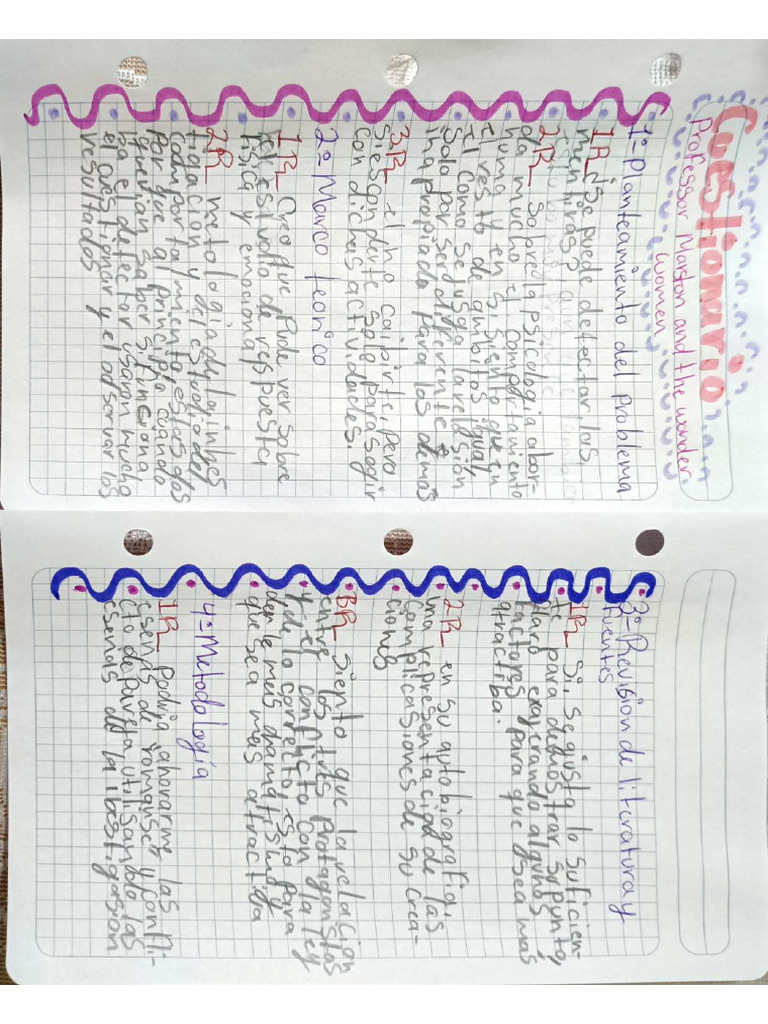 Cuestionario
Professor Marston and the wonder
women
1º Planteamiento del problema
1R ¿Se puede detectar las
mentiras?
2R Sobre la psicologia abor-
da mucho el comportamiento
humano y en si siento que en
el resto de ambitos igual,
el como se jusga la relasion
solo por ser diferente e
inapropiada para los demas
3R el no caibirte, pero
si esconderte solo para segir
con dichas actividades.
2º Marco teorico
1R Creo que pude ver sobre
el estudio de respuesta
fisica y emocional
2R metologia de la inbes-
tigacion y del estudio del
comportamiento, estes dos
por que al principio cuando
querian saber si funsiona
ba el detector usaron mucho
el cuestionar y el observar los
resultados
3º Revision de literatura y
fuentes
1R Si, se gusta lo suficien-
te para demostrar su punto,
claro exagerando algunos
factores para que sea mas
atractiba.
2R en su autobiografia,
una representacion de las
complicasiones de su crea-
ciones
3R Siento que la relacion
entre los tres protagonistas
y el conflicto con la ley
y de lo correcto, esto para
darle mas dramatismo y
que sea mas atractiba
4º Metodología
1R Podria ahorarme las
esenas de romanse y confli-
cto de pareja utilisando las
esenas de la ibestigasion